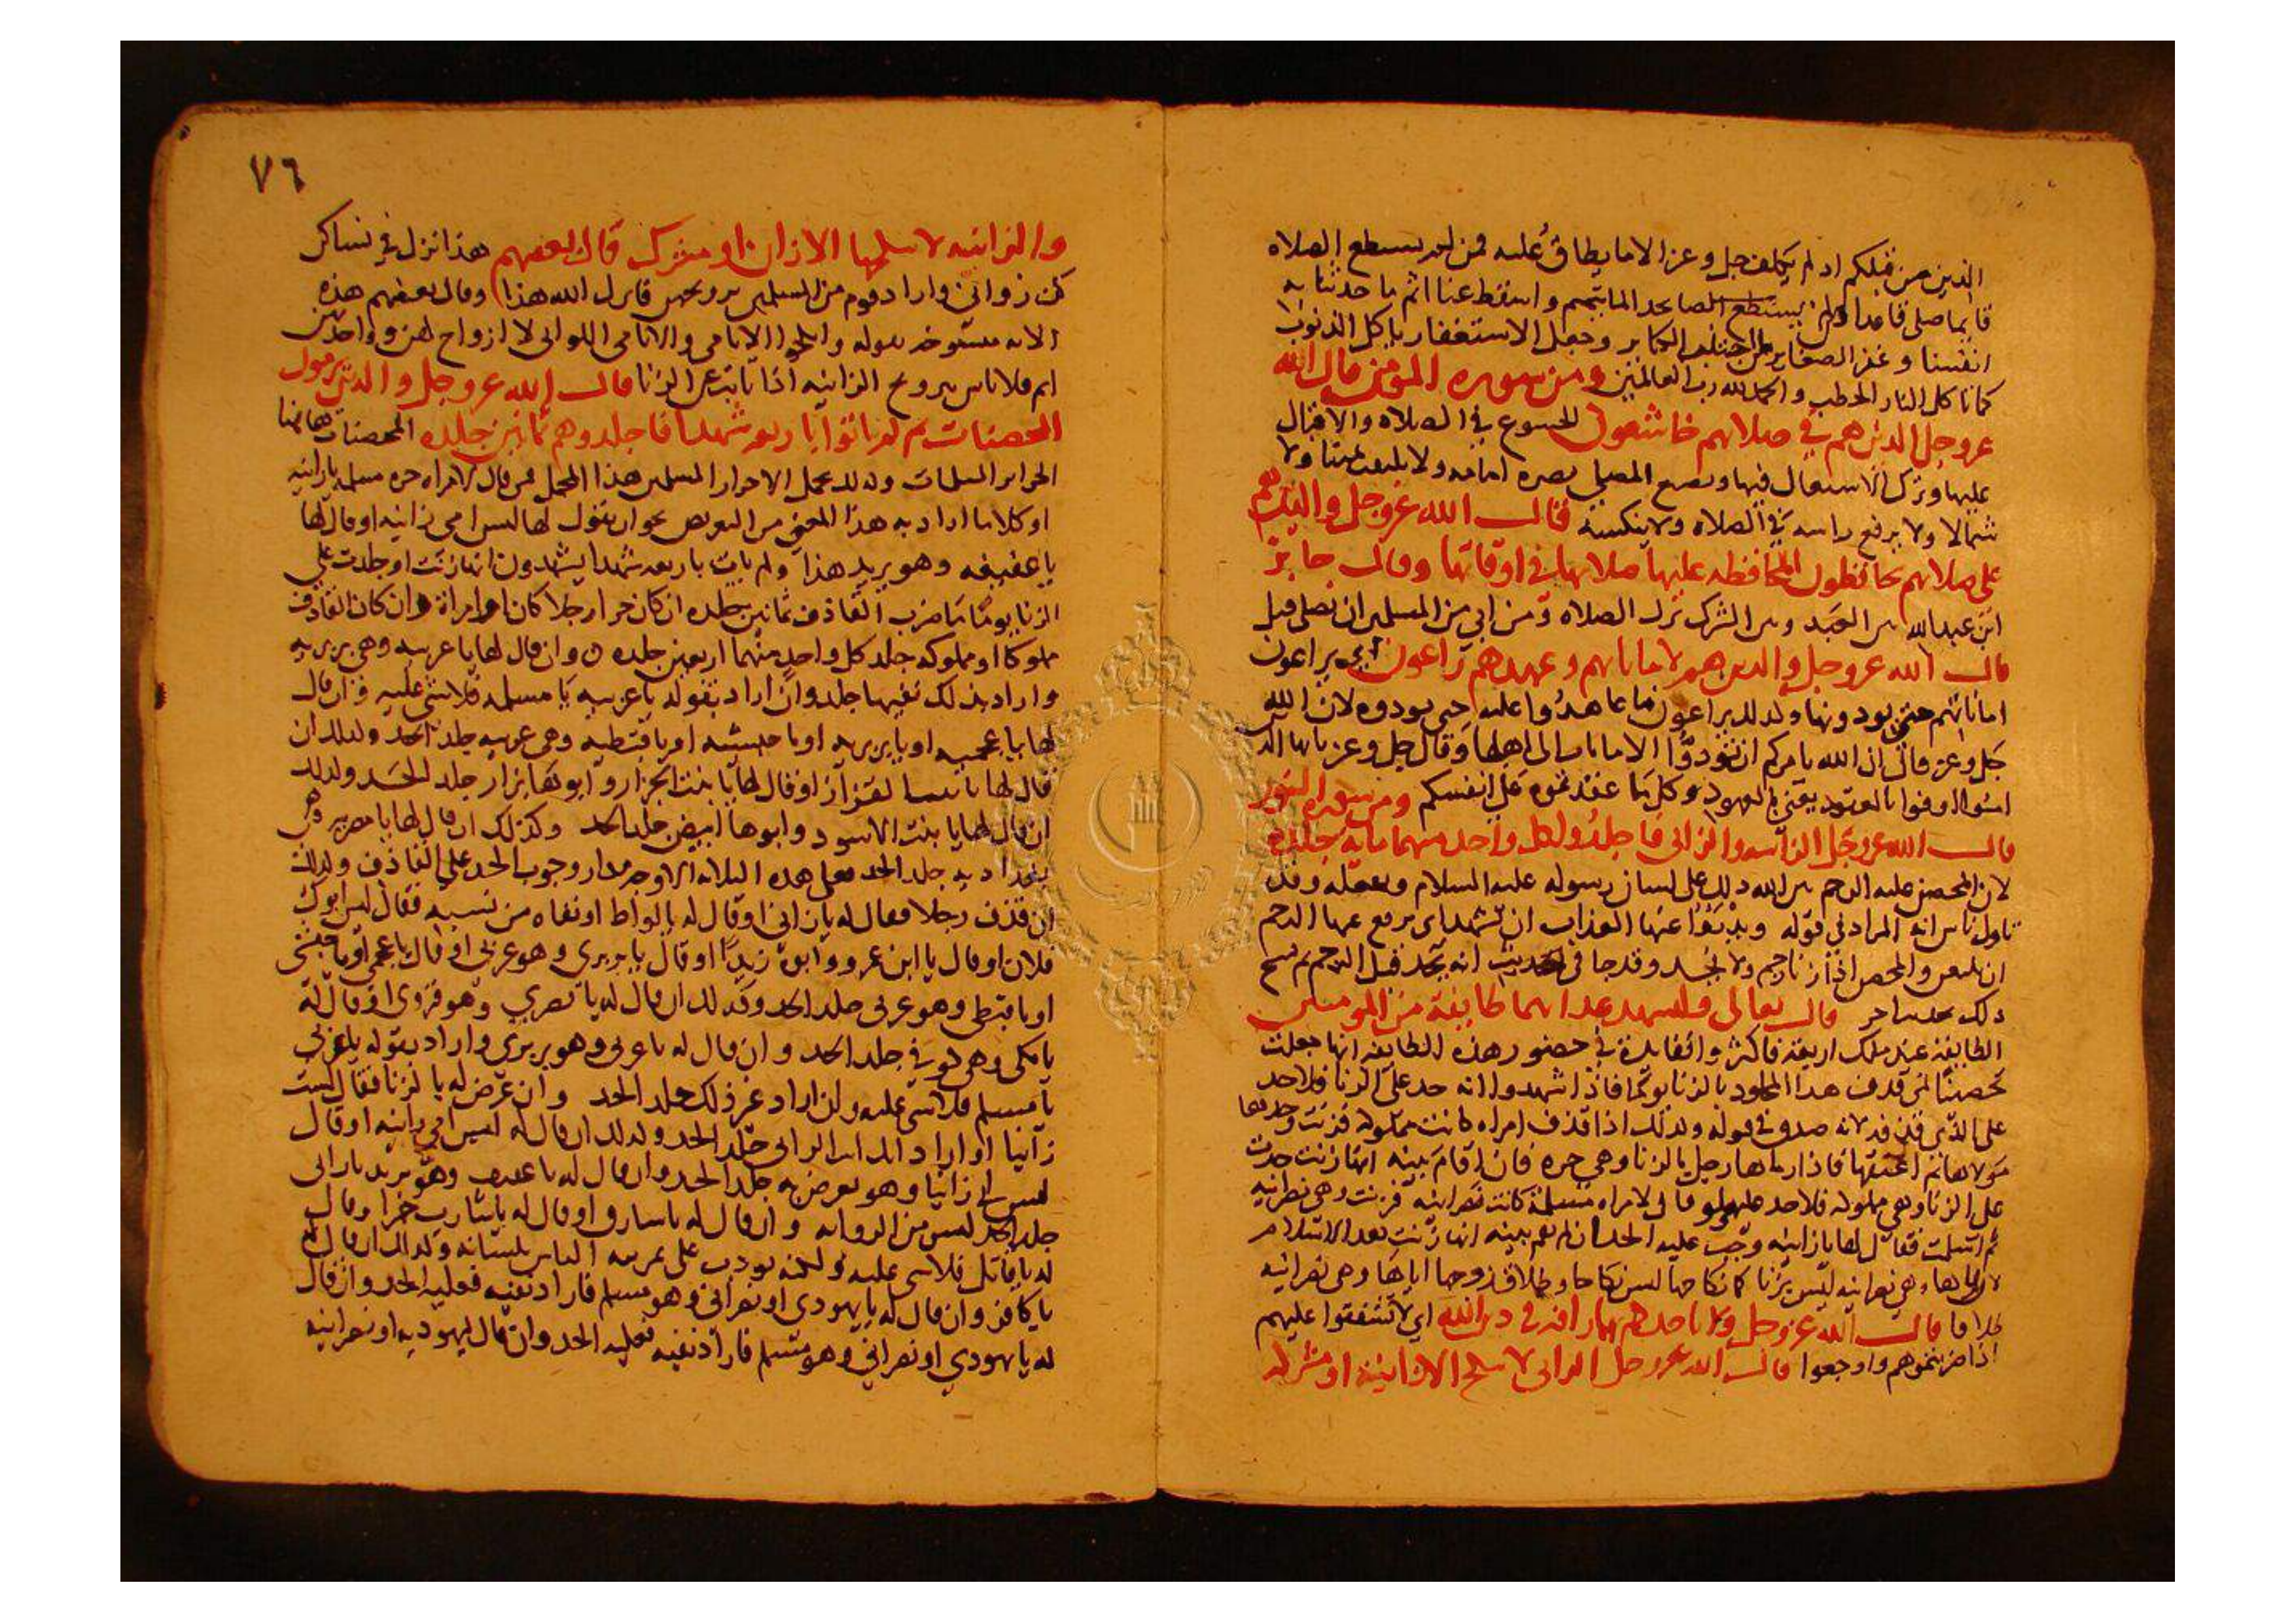 الذين من قبلكم اذ لم يكلف جل وعز الا ما يطاق عليه فمن لم يستطع الصلاه
قايما صلى قاعدا ولمن يستطع الصا يحد الما بتيمم واسقط عنا اثم ما حدثنا به
انفسنا وغفر الصغاير باجتناب الكباير وجعل الاستغفار ياكل الذنوب
كما تاكل النار الحطب والحمد لله رب العالمين ومن سوره المومنين قال الله
عز وجل الذين هم في صلاتهم خاشعون الخشوع في الصلاه والاقبال
عليها وترك الاشتغال فيها ويضع المصلي بصره امامه ولا يلتفت يمينا ولا
شمالا ولا يرفع راسه في الصلاه ولا ينكسه قال الله عز وجل والذين هم
على صلاتهم يحافظون المحافظه عليها صلاتها في اوقاتها وقال جابر
ابن عبد الله بين العبد وبين الشرك ترك الصلاه ومن ابي من المسلمين ان يصلي قتل
قال الله عز وجل والذين هم لاماناتهم وعهدهم راعون اي يراعون
اماناتهم حتى يودونها وكذلك يراعون ما عاهدوا عليه حتى يودوه لان الله
جل وعز قال ان الله يامركم ان تودوا الامانات الى اهلها وقال جل وعز يايها الذين
امنوا اوفوا بالعقود يعني بالعهود وكل ما عقدتموه على انفسكم ومن سوره النور
قال الله عز وجل الزانيه والزاني فاجلدوا كل واحد منهما مايه جلده
لان المحصن عليه الرجم بين الله ذلك على لسان رسوله عليه السلام وبفعله وقد
تاول ناس انه المراد في قوله ويدرؤا عنها العذاب ان تشهد اي يرفع عنها الرجم
ان يلتعن والمحصن اذا زنا رجم ولا يجلد وقد جا في الحديث انه يجلد قبل الرجم ثم نسخ
ذلك بحديث اخر قال تعالى وليشهد عذابهما طايفة من المومنين
الطايفة عند ملك اربعة فاكثر والفايدة في حضور هذه الطايفه انها جعلت
تحصينا لمن قذف هذا المجلود بالزنا يوما فاذا شهدوا انه حد على الزنا فلا حد
على الذي قذفه لانه صدق في قوله وكذلك اذا قذف امراه كانت مملوكه فزنت وحدها
مولاها ثم اعتقها فاذا رماها رجل بالزنا وهي حره فان اقام بينه انها زنت حدت
على الزنا وهي مملوكه فلا حد عليه ولو قال لامراه مسلمة كانت نصرانيه فزنت وهي نصرانيه
ثم اسلمت فقال لها يا زانيه وجب عليه الحد ان لم يقم بينه انها زنت بعد الاسلام
لان زناها وهي نصرانيه ليس بزنا كما نكاحها ليس نكاحا وطلاق زوجها اياها وهي نصرانيه
طلاقا قال الله عز وجل ولا تاخذكم بهما رافه في دين الله اي لا تشفقوا عليهم
اذا ضربتموهم واوجعوا قال الله عز وجل الزاني لا ينكح الا زانية او مشركه
٧٦
والزانيه لا ينكحها الا زان او مشرك قال بعضهم هذا نزل في نسا كن
كن زواني واراد قوم من المسلمين تزويجهن فانزل الله هذا وقال بعضهم هذه
الايه منسوخه بقوله وانكحوا الايامى والايامى اللواتي لا ازواج لهن وواحدتهن
ايم فلا باس بتزويج الزانيه اذا تابت عن الزنا قال الله عز وجل والذين يرمون
المحصنات ثم لم ياتوا باربعه شهدا فاجلدوهم ثمانين جلده المحصنات هاهنا
الحراير المسلمات وكذلك يحمل الاحرار المسلمين هذا المحمل فمن قال لامراه حره مسلمه يا زانيه
او كلاما اراد به هذا المعنى من التعريض نحو ان يقول لها ليس امي زانيه او قال لها
يا عفيفه وهو يريد هذا ولم يات باربعه شهدا يشهدون انها زنت او جلدت على
الزنا يوما ما ضرب القاذف ثمانين جلده ان كان حرا رجلا كان او امراة وان كان القاذف
مملوكا او مملوكه جلد كل واحد منهما اربعين جلده وان قال لها يا عربيه وهي بربريه
واراد بذلك نفيها جلد وان اراد بقوله يا عربيه يا مسلمه فلا شي عليه وان قال
لها يا عجميه او يا بربريه او يا حبشيه او يا قبطيه وهي عربيه جلد الحد وكذلك ان
قال لها يا بنت القزاز او قال لها يا بنت الجزار وابوها بزار جلد الحد وكذلك
ان قال لها يا بنت الاسود وابوها ابيض جلد الحد وكذلك ان قال لها يا مصريه وهي
جلد الحد فعلى هذه الثلاثه الاوجه مدار وجوب الحد على القاذف وكذلك
ان قذف رجلا فقال له يا زاني او قال له يا لواط او نفاه من نسبه فقال ليس ابوك
فلان او قال يا ابن عمرو وابوه زيد او قال يا بربري وهو عربي او قال يا عجمي او يا حبشي
او يا قبطي وهو عربي جلد الحد وكذلك ان قال له يا بصري وهو قروي او قال له
يا مكي وهو كوفي جلد الحد وان قال له يا عربي وهو بربري واراد بقوله يا عربي
يا مسلم فلا شي عليه وان اراد غير ذلك جلد الحد وان عرض له بالزنا فقال لست
زانيا او اراد انك انت الزاني جلد الحد وكذلك ان قال له ليس امي زانيه او قال
ليس ابي زانيا وهو يعرض به جلد الحد وان قال له يا عفيف وهو يريد يا زاني
جلد الحد ليس من الرواية وان قال له يا سارق او قال له يا شارب خمرا وقال
له يا قاتل فلا شي عليه ولكنه يودب على عرضه الناس بلسانه وكذلك ان قال له
يا كافر وان قال له يا يهودي او نصراني وهو مسلم فاراد نفيه فعليه الحد وان قال
له يا يهودي او نصراني وهو مسلم فاراد نفيه فعليه الحد وان قال ليهوديه او نصرانيه